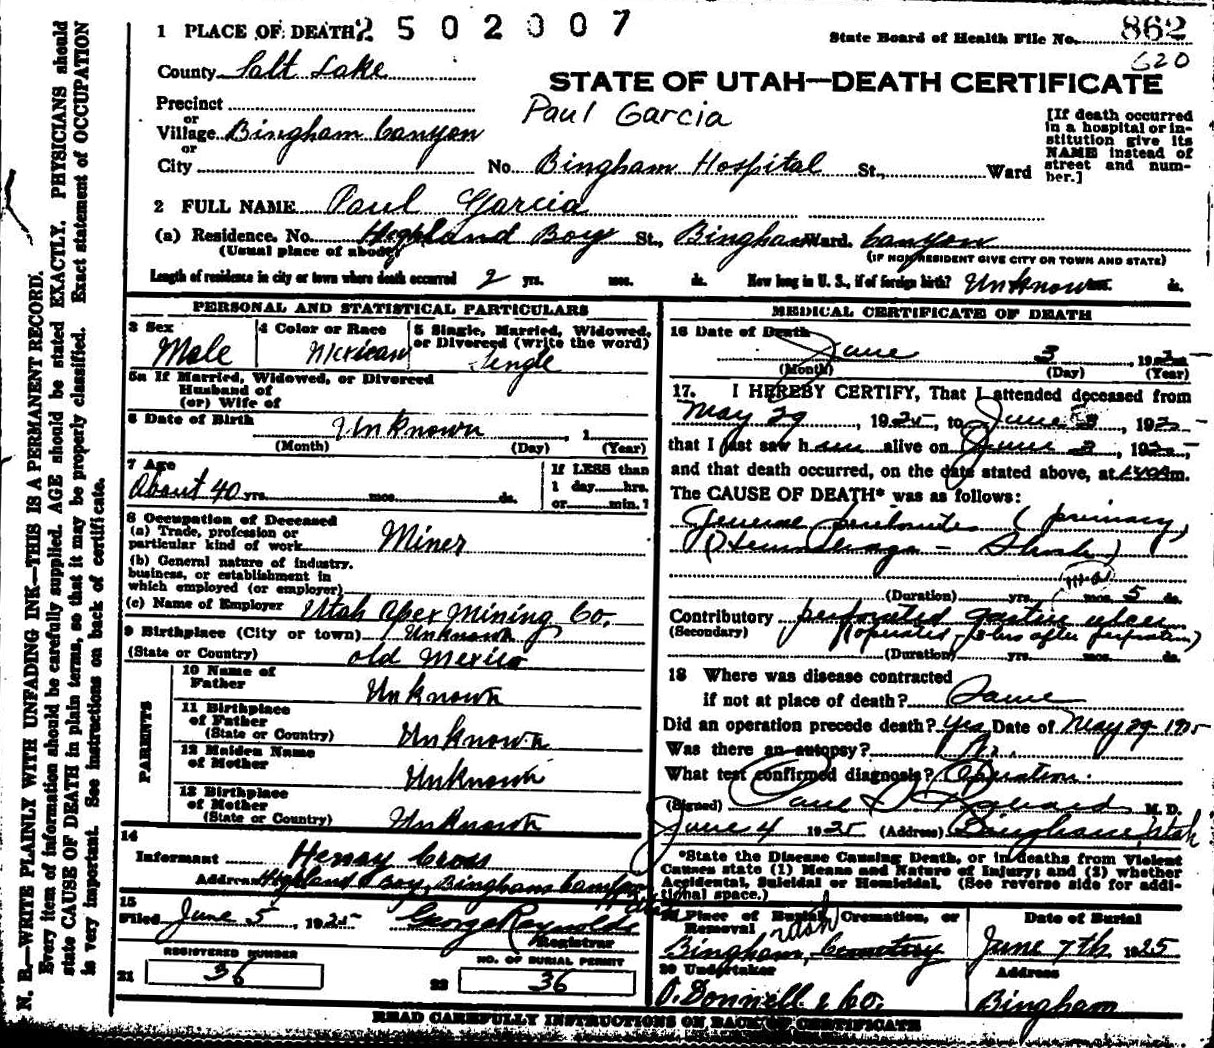 1 PLACE OF DEATH 2502007
State Board of Health File No. 862
620
County Salt Lake
STATE OF UTAH—DEATH CERTIFICATE
Precinct
or
Village Bingham Canyon
or
City
Paul Garcia
No. Bingham Hospital St., Ward
[If death occurred in a hospital or institution give its NAME instead of street and number.]
2 FULL NAME Paul Garcia
(a) Residence. No. Highland Boy St., Bingham Ward. Canyon
(Usual place of abode) (IF NON RESIDENT GIVE CITY OR TOWN AND STATE)
Length of residence in city or town where death occurred 2 yrs. mos. ds. How long in U. S., if of foreign birth? Unknown ds.
PERSONAL AND STATISTICAL PARTICULARS
3 Sex Male
4 Color or Race Mexican
5 Single, Married, Widowed, or Divorced (write the word) Single
5a If Married, Widowed, or Divorced
Husband of
(or) Wife of
6 Date of Birth Unknown , 1
(Month) (Day) (Year)
7 Age About 40 yrs. mos. ds.
If LESS than 1 day hrs. or min.?
8 Occupation of Deceased
(a) Trade, profession or particular kind of work Miner
(b) General nature of industry, business, or establishment in which employed (or employer)
(c) Name of Employer Utah Apex Mining Co.
9 Birthplace (City or town) Unknown
(State or Country) Old Mexico
PARENTS
10 Name of Father Unknown
11 Birthplace of Father (State or Country) Unknown
12 Maiden Name of Mother Unknown
13 Birthplace of Mother (State or Country) Unknown
14
Informant Henry Cross
Address Highland Boy, Bingham Canyon
15
Filed June 5, 1925 George Reynolds
Registrar
REGISTERED NUMBER
21 36
NO. OF BURIAL PERMIT
22 36
MEDICAL CERTIFICATE OF DEATH
16 Date of Death June 3, 1925
(Month) (Day) (Year)
17. I HEREBY CERTIFY, That I attended deceased from
May 29, 1925, to June 3, 1925
that I last saw him alive on June 3, 1925,
and that death occurred, on the date stated above, at m.
The CAUSE OF DEATH* was as follows:
General peritonitis (primary)
(Hemorrhage - Shock)
(Duration) yrs. mos. 5 ds.
Contributory perforated gastric ulcer
(Secondary) (operated, hrs after perforation)
(Duration) yrs. mos. ds.
18 Where was disease contracted
if not at place of death? Same
Did an operation precede death? Yes Date of May 29 1925
Was there an autopsy? No.
What test confirmed diagnosis? Operation.
(Signed) Paul S. Richards M. D.
June 4 1925 (Address) Bingham, Utah
*State the Disease Causing Death, or in deaths from Violent Causes state (1) Means and Nature of Injury; and (2) whether Accidental, Suicidal or Homicidal. (See reverse side for additional space.)
19 Place of Burial, Cremation, or Removal Utah
Bingham, Cemetery
Date of Burial
June 7th 1925
20 Undertaker
O'Donnell & Co.
Address
Bingham
READ CAREFULLY INSTRUCTIONS ON BACK OF CERTIFICATE
N. B.—WRITE PLAINLY WITH UNFADING INK—THIS IS A PERMANENT RECORD.
Every item of information should be carefully supplied. AGE should be stated EXACTLY. PHYSICIANS should
state CAUSE OF DEATH in plain terms, so that it may be properly classified. Exact statement of OCCUPATION
is very important. See instructions on back of certificate.